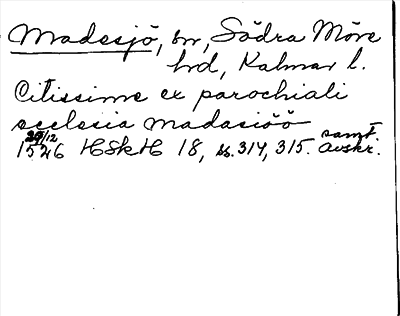 Madesjö, sn, Södra Möre
hd, Kalmar l.
Citissime ex parochiali
ecclesia madasiöö
29/12 samt.
1526 HSkH 18, ss. 314, 315. avskr.